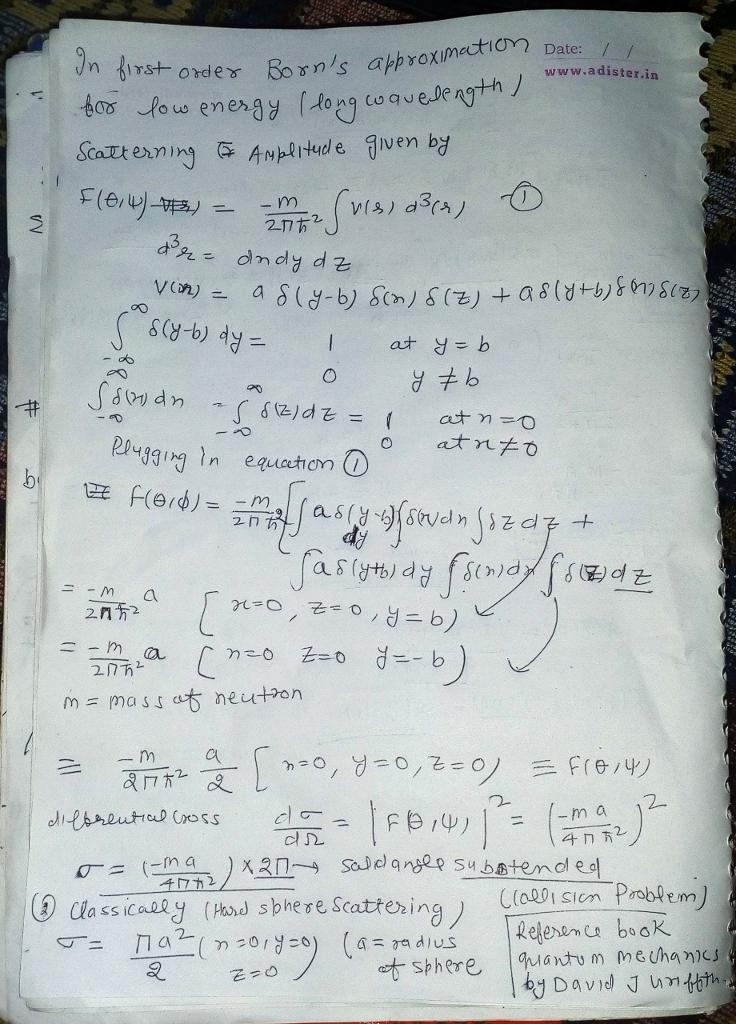 In first order Born's approximation Date: / /
www.adister.in
for low energy (long wavelength)
Scatterning Amplitude given by
F(θ,ψ) = -m/2πħ² ∫ V(r) d³(r) ①
d³r = dx dy dz
V(r) = a δ(y-b) δ(x) δ(z) + a δ(y+b) δ(x) δ(z)
∫_{-∞}^{∞} δ(y-b) dy = 1 at y = b
0 y ≠ b
∫_{-∞}^{∞} δ(x) dx = ∫_{-∞}^{∞} δ(z) dz = 1 at x = 0
0 at x ≠ 0
Plugging in equation ①
F(θ,φ) = -m/2πħ² [ ∫ a δ(y-b) dy ∫ δ(x) dx ∫ δz dz +
∫ a δ(y+b) dy ∫ δ(x) dx ∫ δ(z) dz
= -m/2πħ² a [ x=0, z=0, y=b)
= -m/2πħ² a [ x=0 z=0 y=-b)
m = mass of neutron
= -m/2πħ² a/2 [ x=0, y=0, z=0) ≡ F(θ,ψ)
differential cross dσ/dΩ = |F(θ,ψ)|² = (-ma/4πħ²)²
σ = (-ma/4πħ²) × 2π → solid angle subtended
② Classically (Hard sphere scattering) (Collision Problem)
σ = πa²/2 (x=0, y=0, z=0) (a = radius of sphere
Reference book
quantum mechanics
by David J Griffth
#
Σ
b